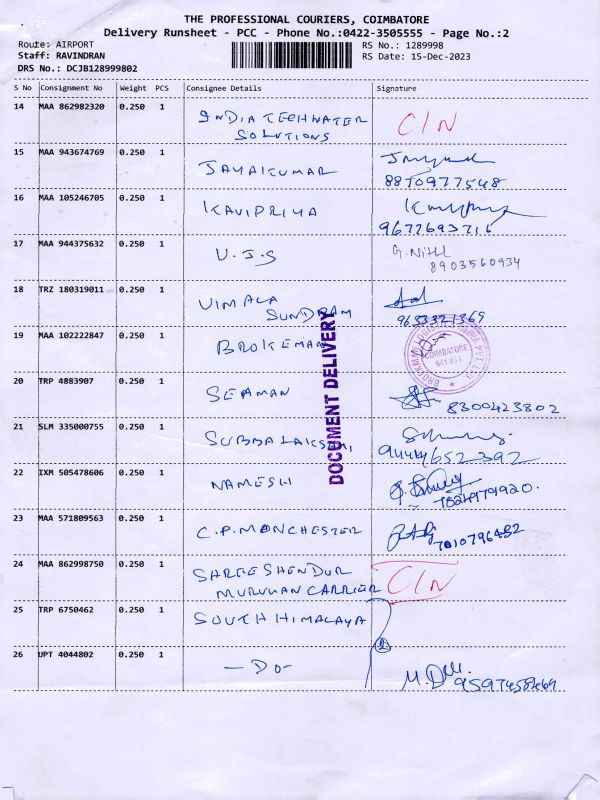 THE PROFESSIONAL COURIERS, COIMBATORE
Delivery Runsheet - PCC - Phone No.:0422-3505555 - Page No.:2
Route: AIRPORT RS No.: 1289998
Staff: RAVINDRAN RS Date: 15-Dec-2023
DRS No.: DCJB128999802
S No Consignment No Weight PCS Consignee Details Signature
14 MAA 862982320 0.250 1 INDIA TECHWATER C/N
SOLUTIONS
15 MAA 943674769 0.250 1 JAYAKUMAR
8870977548
16 MAA 105246705 0.250 1 KAVIPRIYA
9677693716
17 MAA 944375632 0.250 1 U.J.S G. Nithl
8903560934
18 TRZ 180319011 0.250 1 VIMALA
SUNDRAM 9633321369
19 MAA 102222847 0.250 1 BROKEMAN
COIMBATORE
DOCUMENT DELIVERY
20 TRP 4883907 0.250 1 SEAMAN 8300423802
21 SLM 335000755 0.250 1 SUBBALAKSHMI
9444652392
22 IXM 505478606 0.250 1 NAMESH
23 MAA 571809563 0.250 1 C.P. MANCHESTER 7010796452
24 MAA 862998750 0.250 1 SHREESHENDUR C/N
MURUHAN CARRIER
25 TRP 6750462 0.250 1 SOUTH HIMALAYA
2
26 UPT 4044802 0.250 1 — DO —